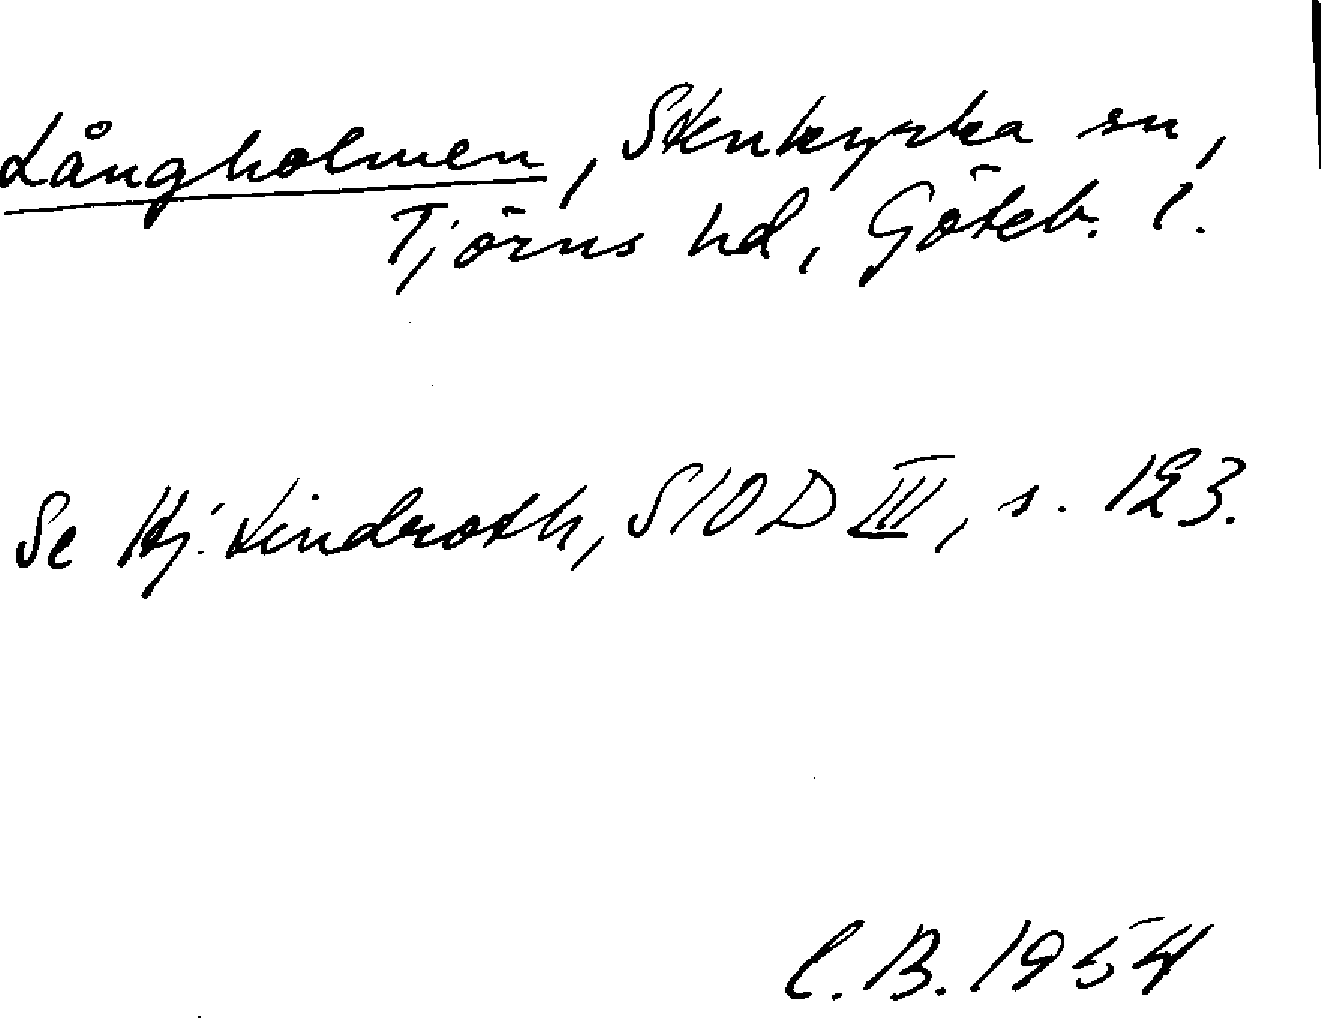 Långholmen, Stenkyrka sn,
Tjörns hd, Göteb. l.
Se Hj. Lindroth, SIOD III, s. 123.
C.B. 1954